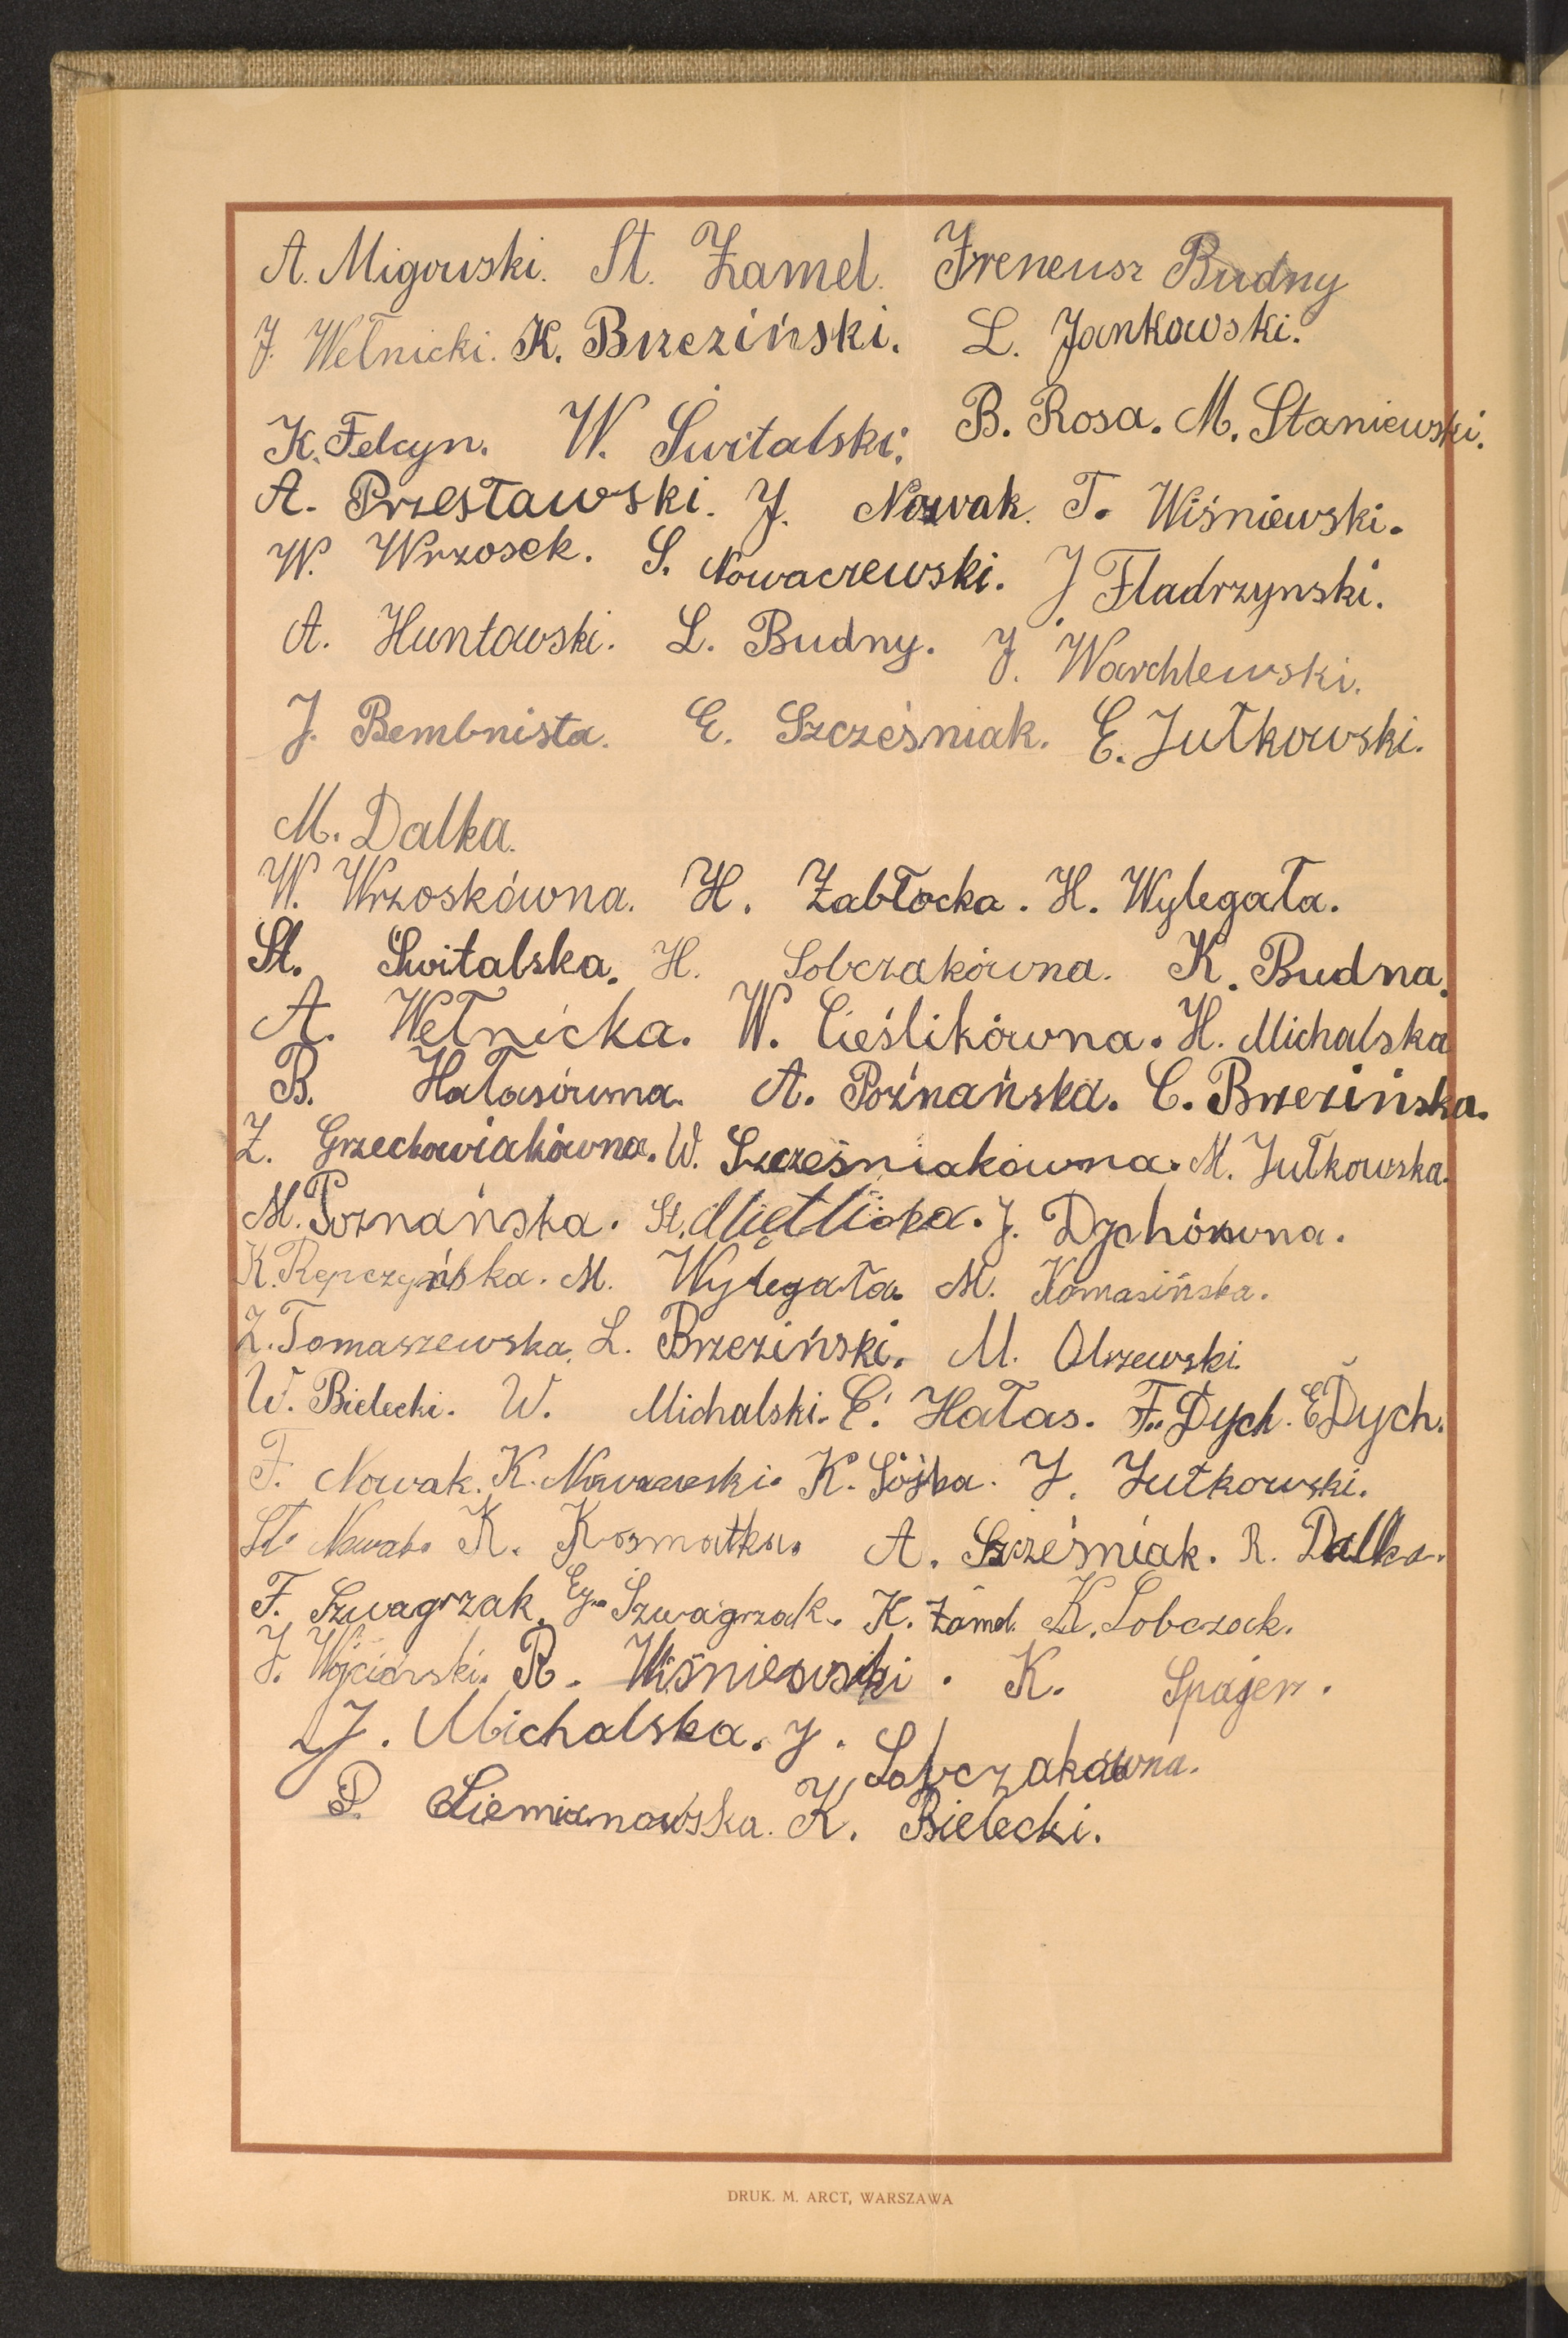 A. Migowski. St. Żamel. Ireneusz Budny
J. Wełnicki. K. Brzeziński. L. Jankowski.
K. Felcyn. W. Świtalski. B. Rosa. M. Staniewski.
A. Przesławski. J. Nowak. T. Wiśniewski.
W. Wrzosek. S. Nowaczewski. J Fladrzynski.
A. Huntowski. L. Budny. J. Warchlewski.
J. Bembnista. E. Szcześniak. E. Jutkowski.
M. Dalka.
W. Wrzoskówna. H. Zabłocka. H. Wylegała.
St. Świtalska. H. Sobczakówna. K. Budna.
A. Wełnicka. W. Cieślikówna. H. Michalska
B. Hałasówna. A. Poznańska. C. Brzezińska.
Z. Grzechowiakówna. W. Szcześniakówna. M. Jutkowska.
M. Poznańska. St. J. Dychówna.
K. Repczyńska. M. Wylegała M. Komasińska.
Z. Tomaszewska. L. Brzeziński. M. Olszewski.
W. Bielecki. W. Michalski. C. Hałas. F. Dych. E Dych.
F. Nowak. K. K. J. Jutkowski.
St. Nowak. K. Kosmatka. A. Szcześniak. R. Dalka.
F. Szwagrzak. Szwagrzak. K. Żamel. K. Sobczak.
J. R. Wiśniewski. K. Spajer.
J. Michalska. J. Sobczakówna.
P. Siemianowska. K. Bielecki.
DRUK. M. ARCT, WARSZAWA